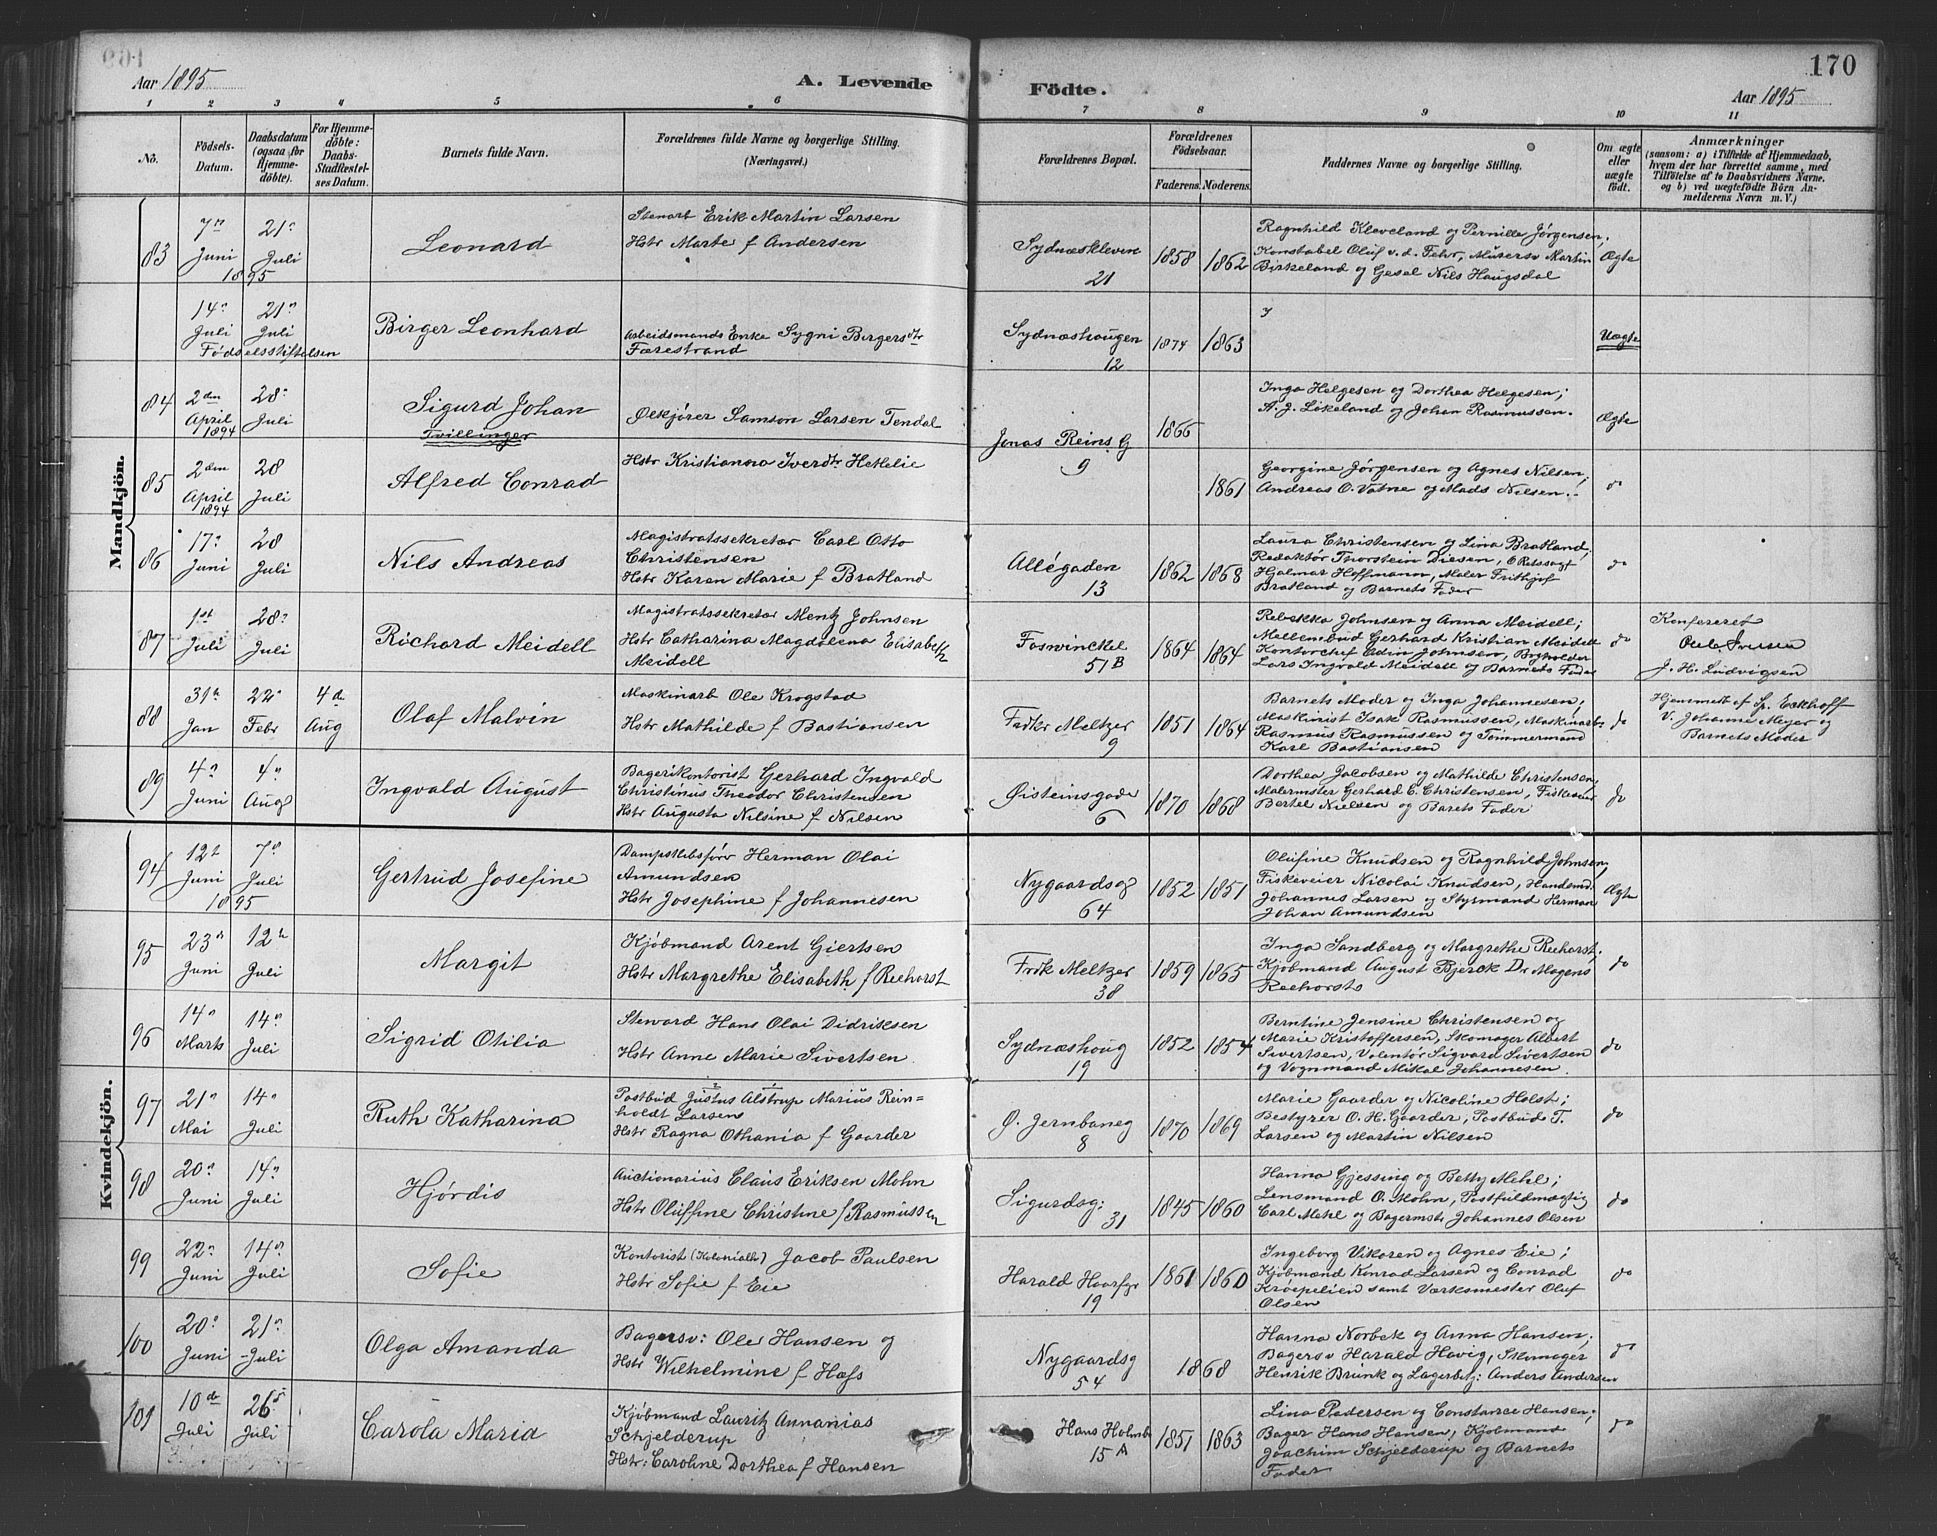 170
Aar 1895
A. Levende
Födte.
Aar 1895
1 2 3 4 5 6 7 8 9 10 11
No.
Födsels-
Datum.
Daabsdatum
(ogsaa for
Hjemme-
döbte).
For Hjemme-
döbte:
Daabs-
Stadfæstel-
ses Datum.
Barnets fulde Navn.
Forældrenes fulde Navne og borgerlige Stilling.
(Næringsvei.)
Forældrenes Bopæl.
Forældrenes
Födselsaar.
Faderens. Moderens.
Faddernes Navne og borgerlige Stilling.
Om ægte
eller
uægte
födt.
Anmærkninger
(saasom: a) i Tilfælde af Hjemmedaab,
hvem der har forrettet samme, med
Tilföielse af to Daabsvidners Navne.
og b) ved uægtefödte Börn An-
melderens Navn m. V.)
Mandkjön.
83
7de Juni 1895
21 Juli
Leonard
Steuart Erik Martin Larsen
Hstr Marte f Andersen
Sydnæskleven
21
1858 1862
Ragnhild Kleveland og Pernille Jørgensen;
Konstabel Oluf v. d. Fehr, Murersv Martin
Birkeland og Gesel Nils Haugsdal
Ægte
14 Juli
21 Juli
Fødselsstiftelsen
Birger Leonhard
Arbeidsmands Enke Sygni Birgersdtr
Færestrand
Sydnæshougen
12
1874 1863
Uægte
84
2den April 1894
28 Juli
Sigurd Johan
Tvillinger
Ølkjører Samson Larsen Tendal
Jonas Reins G
9
1866
Inga Helgesen og Dorthea Helgesen;
A. J. Løkeland og Johan Rasmussen.
Ægte
85
2den April 1894
28 Juli
Alfred Conrad
Hstr Kristianna Iversdtr Hetlelie
1861
Georgine Jørgensen og Agnes Nilsen;
Andreas O. Vatne og Mads Nilsen.
do
86
17 Juni
28 Juli
Nils Andreas
Magistratssekretær Carl Otto
Christensen
Hstr Karen Marie f Bratland
Allégaden
13
1862 1868
Laura Christensen og Lina Bratland;
Redaktør Thorstein Diesen, ORetssagf
Hjalmar Hoffmann, Maler Frithjof
Bratland og Barnets Fader
do
87
1ste Juli
28 Juli
Richard Meidell
Magistratssekretær Mentz Johnsen
Hstr Catharina Magdalena Elisabeth
Meidell
Foswinckel
51 B
1864 1864
Rebekka Johnsen og Anna Meidell;
Mellembud Gerhard Kristian Meidell
Kontorchef Edin Johnsen, Bogholder
Lars Ingvald Meidell og Barnets Fader
do
Konfereret
J. H. Ludvigsen
88
31te Jan
22 Febr
4de Aug
Olaf Malvin
Maskinarb Ole Krogstad
Hstr Mathilde f Bastiansen
Fredkr Meltzer
9
1851 1864
Barnets Moder og Inga Johannesen;
Maskinist Isak Rasmussen, Maskinarb.
Rasmus Rasmussen og Tømmermand
Karl Bastiansen
do
Hjemmedt af Sp. Eckhoff
V. Johanne Meyer og
Barnets Moder
89
4 Juni
4 Aug
Ingvald August
Bagerikontorist Gerhard Ingvald
Christinus Theodor Christensen
Hstr Augusta Nilsine f Nilsen
Øisteinsgade
6
1870 1868
Dorthea Jacobsen og Mathilde Christensen,
Malermster Gerhard C. Christensen, Fiskeveier
Bertel Nielsen og Barets Fader
do
Kvindekjön.
94
12te Juni 1895
7 Juli
Gertrud Josefine
Dampskibsfører Herman Olai
Amundsen
Hstr Josephine f Johannesen
Nygaardsg
64
1852 1851
Olufine Knudsen og Ragnhild Johnsen;
Fiskeveier Nicolai Knudsen, Handelsmd.
Johannes Larsen og Styrmand Herman
Johan Amundsen
Ægte
95
23de Juni
12te Juli
Margit
Kjøbmand Arent Giertsen
Hstr Margrethe Elisabeth f Reehorst
Frdk Meltzer
38
1859 1865
Inga Sandberg og Margrethe Reehorst;
Kjøbmand August Bjerck Dr Magens
Reehorsts
do
96
14 Marts
14 Juli
Sigrid Otilia
Steward Hans Olai Didriksen
Hstr Anne Marie Sivertsen
Sydnæshoug
19
1852 1854
Berntine Jensine Christensen og
Marie Kristoffersen, Skomager Albert
Sivertsen, Volentør Sigvard Sivertsen
og Vognmand Mikal Johannesen.
do
97
21 Mai
14 Juli
Ruth Katharina
Postbud Justus Alstrup Marius Rein-
holdt Larsen
Hstr Ragna Othania f Gaarder
Ø. Jernbaneg
8
1870 1869
Marie Gaarder og Nicoline Holst;
Bestyrer O. H. Gaarder, Postbude T.
Larsen og Martin Nilsen
do
98
20 Juni
14 Juli
Hjørdis
Auctionarius Claus Eriksen Mohn
Hstr Oluffine Christine f Rasmussen
Sigurdsg:
31
1845 1860
Hanna Gjessing og Betty Mehl;
Lensmand O. Mohn, Postfuldmægtig
Carl Mehl og Bagermstr Johannes Olsen
do
99
22 Juni
14 Juli
Sofie
Kontorist (Kolonialh) Jacob Paulsen
Hstr Sofie f Eie
Harald Haarfgr
19
1861 1860
Ingeborg Vikøren og Agnes Eie;
Kjøbmand Konrad Larsen og Conrad
Krøepelien samt Værksmester Oluf
Olsen
do
100
20 Juni
21 Juli
Olga Amanda
Bagersv: Ole Hansen og
Hstr Wilhelmine f Hafs
Nygaardsg
54
1868
Hanna Norbek og Anna Hansen;
Bagersv Harald Havig, Skomager
Henrik Brunk og Lagerbetj: Anders Andersen
do
101
10de Juli
26 Juli
Carola Maria
Kjøbmand Lauritz Annanias
Schjelderup
Hstr: Caroline Dorthea f Hansen
Hans Holmb
15 A
1851 1863
Lina Pedersen og Constance Hansen;
Bager Hans Hansen, Kjøbmand
Joachim Schjelderup og Barnets
Fader
do